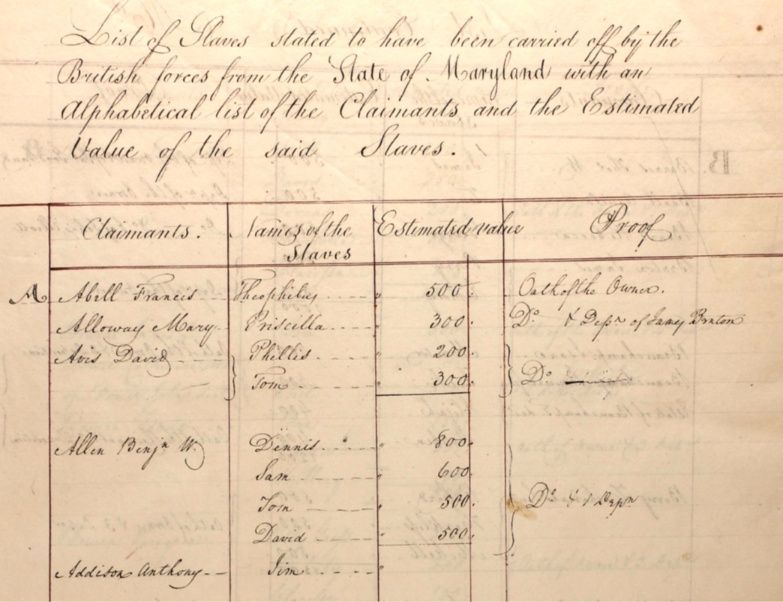 List of Slaves stated to have been carried off by the
British forces from the State of Maryland with an
Alphabetical list of the Claimants and the Estimated
Value of the said Slaves.
Claimants. Names of the Slaves Estimated value Proof
A Abell Francis Theophilus 500 Oath of the Owner.
Alloway Mary Priscilla 300 Do & Depn of
Avis David Phillis 200
Tom 300 Do
Allen Benjn W. Dennis 800
Sam 600
Tom 500 Do & 1 Depn
David 500
Addison Anthony Jim